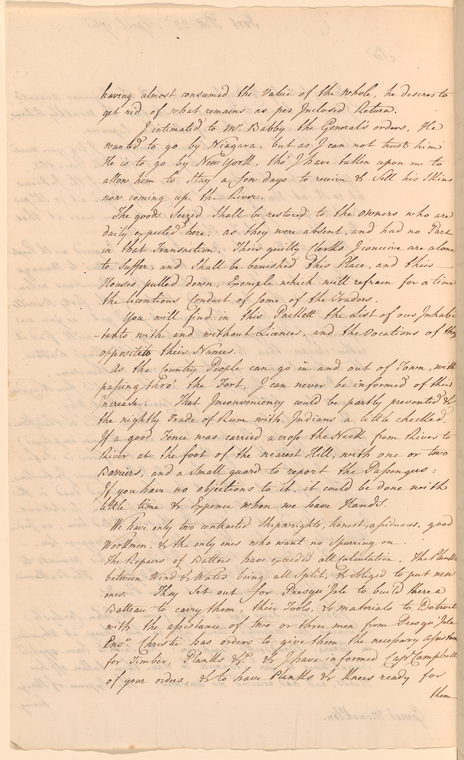 having almost consumed the Value of the Whole, he desires to
get rid of what remains as per Inclosed Return.
I intimated to Mr. Babby the General's orders, He
wanted to go by Niagara, but as I can not trust him
He is to go by New York, tho' I have taken upon me to
allow him to Stay a few Days to receive & Sell his Skins
now coming up the River.
The goods Seized Shall be restored to the owners who are
daily expected here, as they were absent, and had no Part
in that Transaction. Their guilty Clerks I conceive are alone
to Suffer, and Shall be banished This Place, and their
Houses pulled down, Exemple which will refrain for a time
the licentious Conduct of Some of the Traders.
You will find in this Packett the List of our Inhabi
-tants with and without Licences, and the Vocations of they
opposite to their Names.
As the Country People can go in and out of Town, with
passing thro' the Fort, I can never be informed of their
Increase. That Inconveniency could be partly prevented &
the nightly Trade of Rum with Indians a little checked,
If a good Fence was carried across the Neck from River to
River at the foot of the nearest Hill, with one or two
Barriers, and a Small guard to report the Passengers:
If you have no objections to it, it could be done with
little time & Expence when we have Hands.
We have only two contracted Shipwrights, honest, assiduous, good
Workmen, & the only ones who want no Spurring on.
The Repairs of Battoes have exceeded all Calculation, The Planks
between Wind & Water being all Split, & obliged to put new
ones. They Set out for Presqu'Isle to build there a
Batteau to carry them, their Tools, & materials to Detroit
with the assistance of two or three men from Presqu'Isle
Ensn. Christie has orders to give them the necessary assistance
for Timber, Planks &c. & I have informed Capt. Campbell
of your orders, & to have Planks & Knees ready for
them